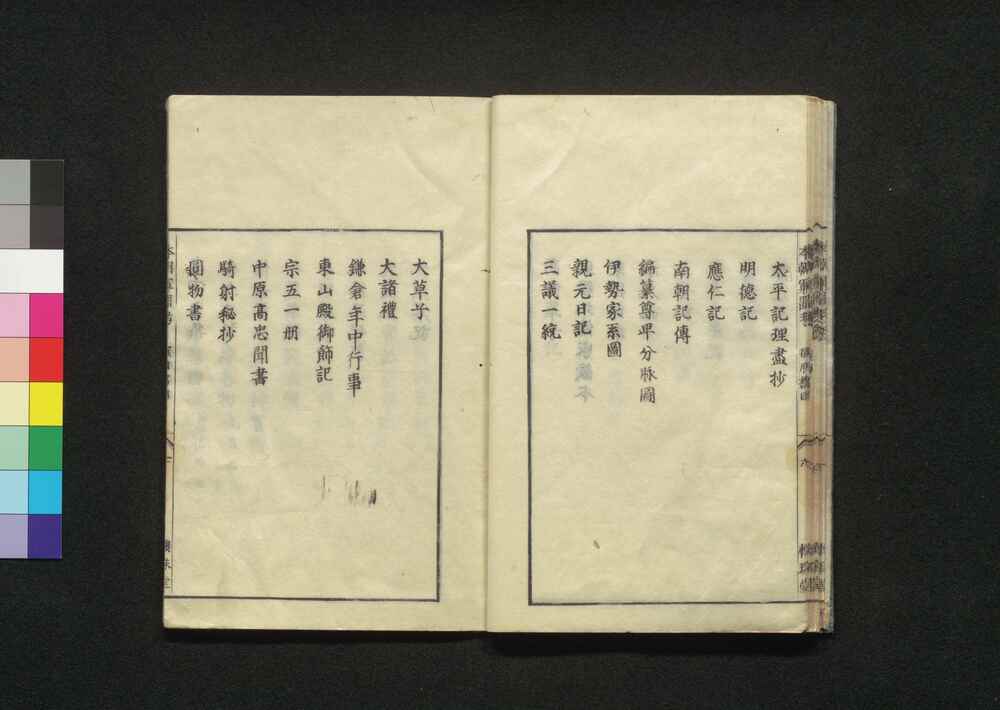 太平記理盡抄
明德記
應仁記
南朝記傳
編纂尊卑分脉圖
伊勢家系圖
親元日記
三議一統
大草子
大諸禮
鎌倉年中行事
東山殿御飾記
宗五一册
中原高忠聞書
騎射秘抄
圓物書